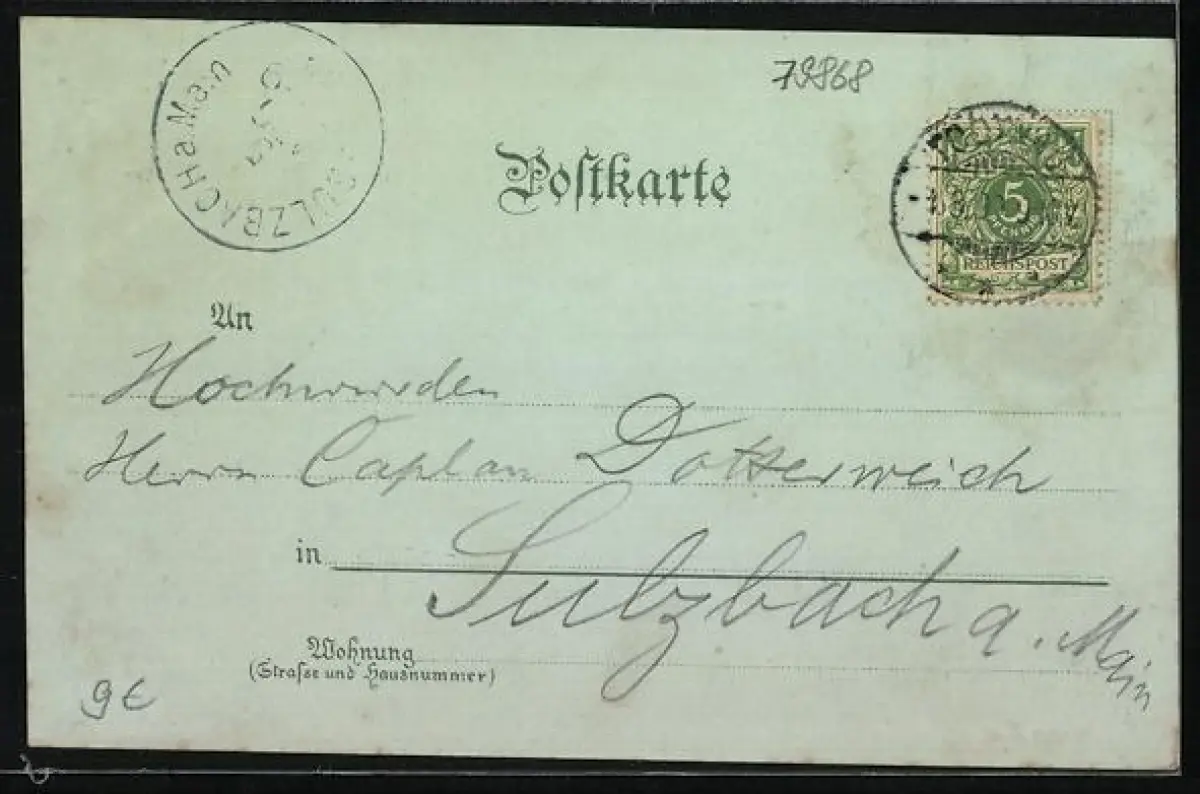 SULZBACH a. Main
79868
Postkarte
5
PFENNIG
REICHSPOST
An
Hochwürden
Herrn Caplan Dotterweich
in
Sulzbach a. Main
Wohnung
(Straße und Hausnummer)
9€